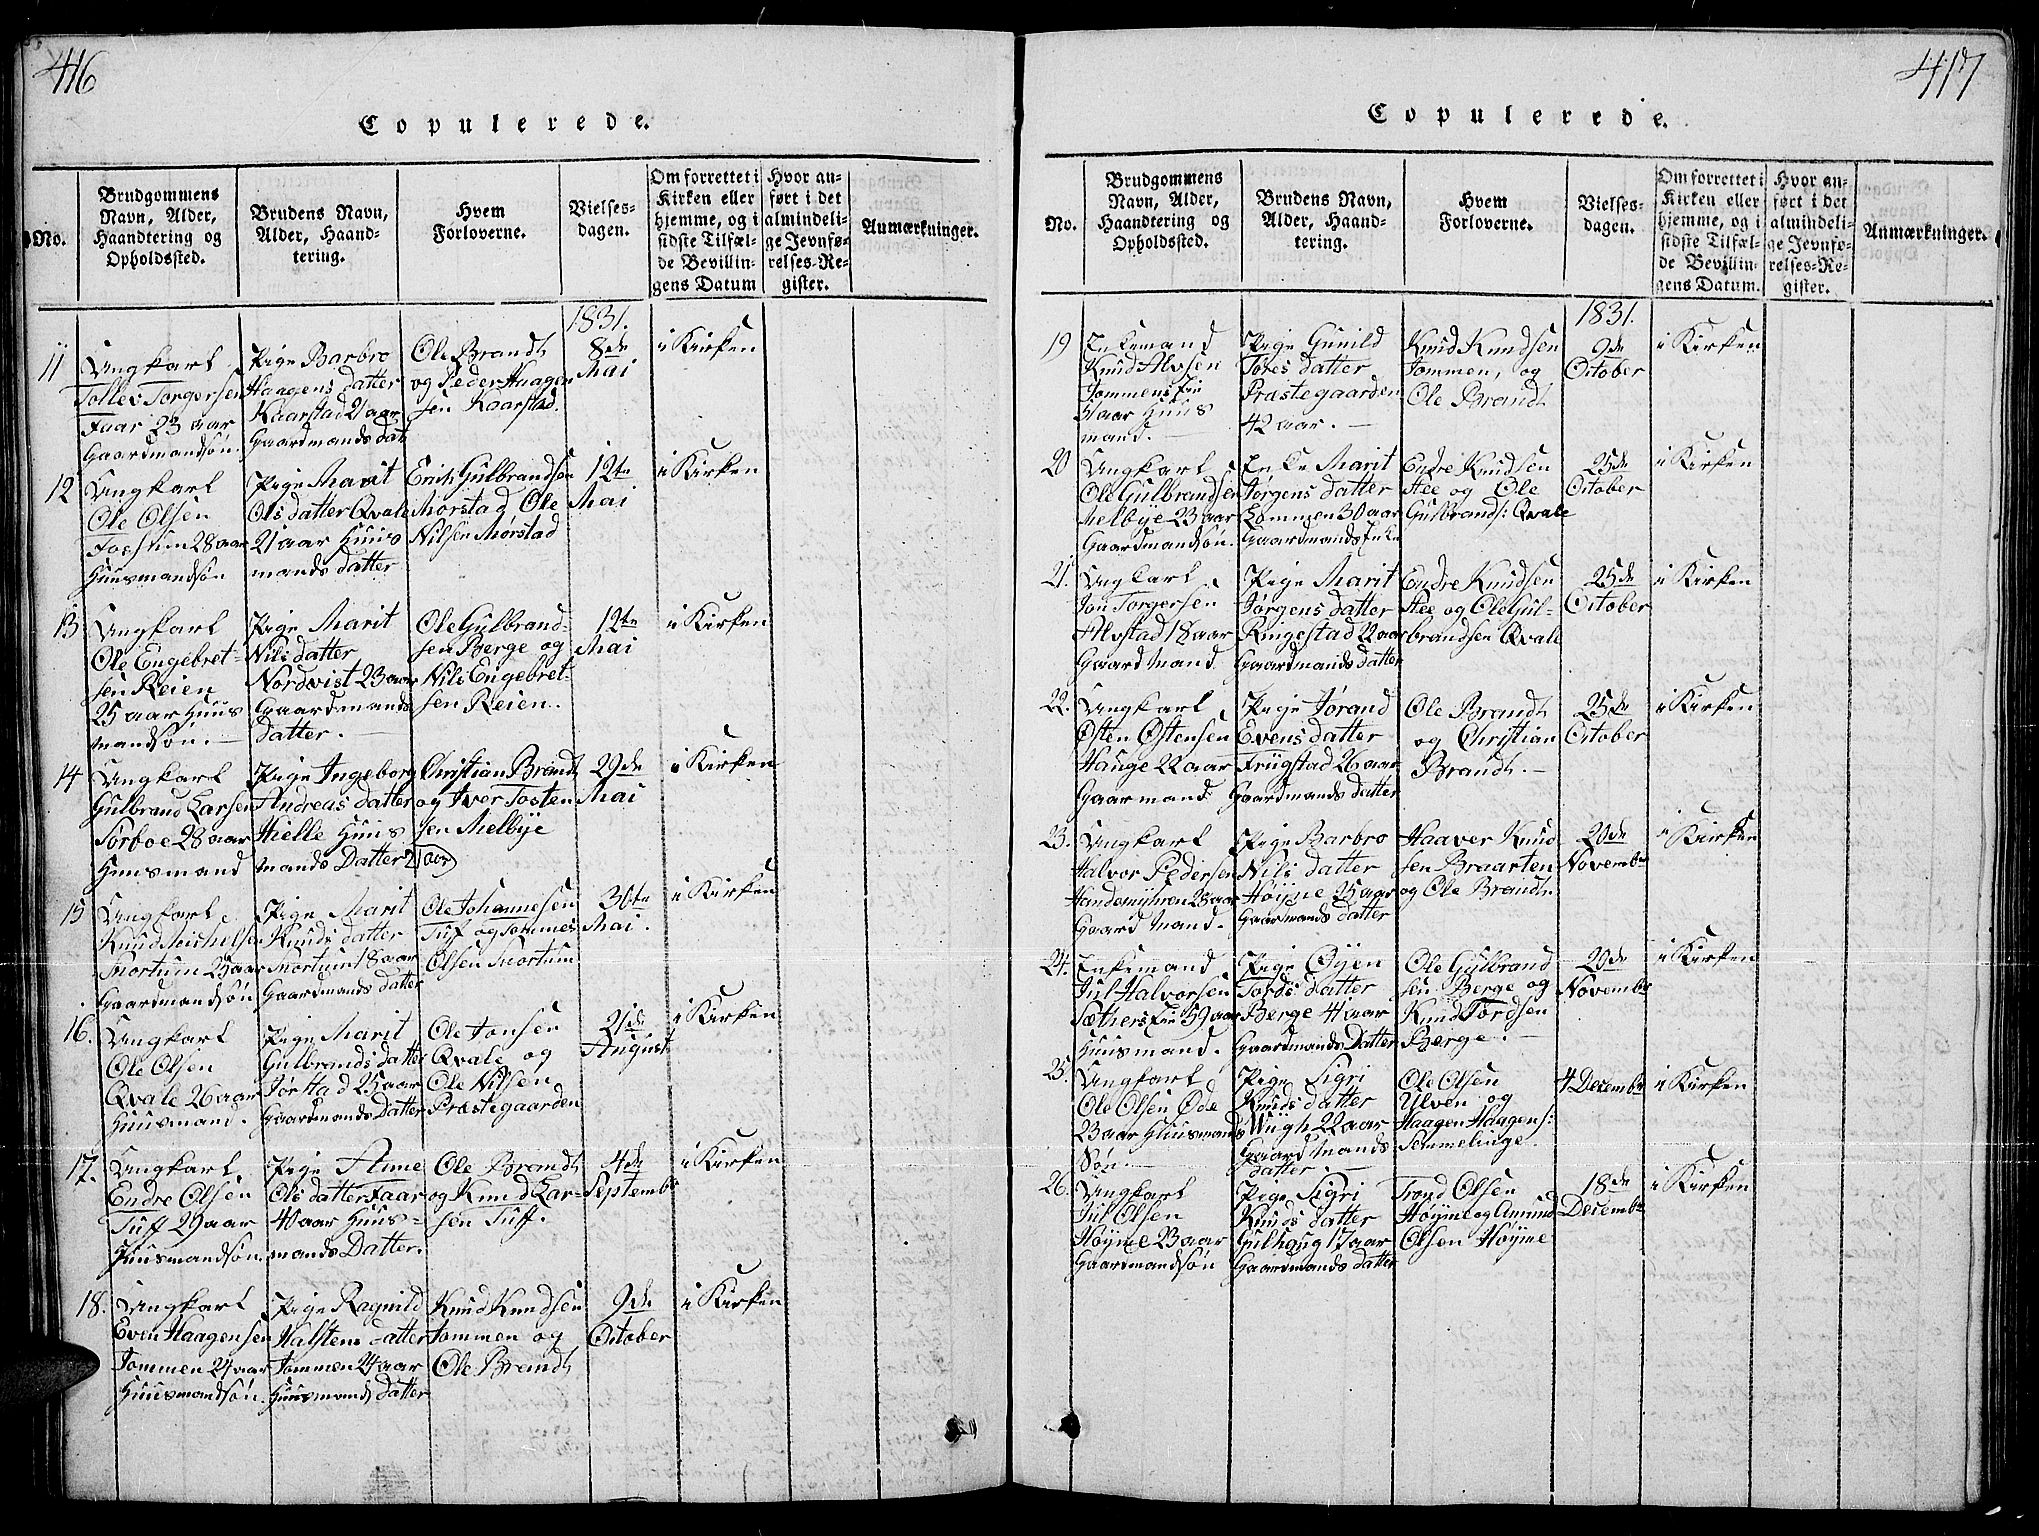 416
Copulerede.
No.
Brudgommens Navn, Alder, Haandtering og Opholdssted.
Brudens Navn, Alder, Haandtering.
Hvem Forloverne.
Vielsesdagen.
Om forrettet i Kirken eller hjemme, og i sidste Tilfælde Bevillingens Datum
Hvor anført i det almindelige Jevnførelses-Register.
Anmærkninger.
1831.
11
Ungkarl
Tollev Torgersen
Faar 23 aar
Gaardmandsøn.
Pige Barbro
Haagens datter
Kaarstad 21 aar
Gaardmands dat
Ole Brandt
og Peder Haagen
sen Kaarstad.
8de
Mai
i Kirken
12
Ungkarl
Ole Olsen
28 aar
Huusmandsøn
Pige Marit
Ols datter Qvale
21 aar Huus
mands datter
Erich Gulbrandsen
Morstad, Ole
Nilsen Mørstad
12te
Mai
i Kirken
13
Ungkarl
Ole Engebret-
sen Reien
25 aar Huus
mandsøn.
Pige Marit
Nils datter
Nordvist 23 aar
Gaardmands
datter.
Ole Gulbrand-
sen Berge og
Nils Engebret-
sen Reien.
12te
Mai
i Kirken
14
Ungkarl
Gulbrand Larsen
Sørboe 28 aar
Huusmand
Pige Ingeborg
Andreas datter
Hielle Huus
mands Datter 21 aar
Christian Brandt
og Iver Tosten
sen Melbye
29de
Mai
i Kirken
15
Ungkarl
Knud
25 aar
Gaardmandsøn
Pige Marit
Knuds datter
18 aar
Gaardmands datter
Ole Johannesen
Tuf og
Olsen
30te
Mai.
i Kirken
16.
Ungkarl
Ole Olsen
Qvale 26 aar
Huusmand.
Pige Marit
Gulbrands datter
Jørstad 25 aar
Gaardmands Datter
Ole Jonsen
Qvale og
Ole Nilsen
Præstegaarden
21de
August
i Kirken
17.
Ungkarl
Endre Olsen
Tuff 29 aar
Huusmandsøn.
Pige Anne
Ols datter Faar
40 aar Huus-
mands Datter.
Ole Brandt
og Knud Lar-
sen Tuff.
4de
Septembr
i Kirken
18.
Ungkarl
Even Haagensen
Tommen 24 aar
Huusmandsøn.
Pige Ragnild
Halstens datter
Tommen 24 aar
Huusmands datter
Knud Knudsen
Tommen og
Ole Brandt
9de
October
i Kirken
417
Copulerede.
No.
Brudgommens Navn, Alder, Haandtering og Opholdssted.
Brudens Navn, Alder, Haandtering.
Hvem Forloverne.
Vielsesdagen.
Om forrettet i Kirken eller hjemme, og i sidste Tilfælde Bevillingens Datum.
Hvor anført i det almindelige Jevnførelses-Register.
Anmærkninger.
1831.
19
Enkemand
Knud Alvsen
Tommens Eie
51 aar Huus
mand.
Pige Gunild
Tores datter
Præstegaarden
42 aar.
Knud Knudsen
Tommen, og
Ole Brandt
9de
October
i Kirken
20
Ungkarl
Ole Gulbrandsen
Melbye 23 aar
Gaardmandsøn.
Enke Marit
Jørgens datter
Lommen 30 aar
Gaardmands Enke
Endre Knudsen
Hee og Ole
Gulbrands: Qvale
25de
October
i Kirken
21.
Ungkarl
Jon Torgersen
Alvstad 18 aar
Gaard Mand
Pige Marit
Jørgens datter
Ringestad 22 aar
Gaardmands datter
Endre Knudsen
Hee og Ole Gul-
brandsen Qvale
25de
October
i Kirken
22.
Ungkarl
Østen Østensen
Hauge 22 aar
Gaarmand
Pige Jørand
Evens datter
Frugstad 26 aar
Gaardmands datter
Ole Brandt
og Christian
Brandt.
25de
October
i Kirken
23.
Ungkarl
Halvor Pedersen
Handemyhren 28 aar
Gaard Mand.
Pige Barbro
Nils datter
Høyme 25 aar
Gaarmands datter
Haaver Knud
sen Braarten
og Ole Brandt.
20de
Novembr
i Kirken
24.
Enkemand
Jul Halvorsen
Sæthers Eie 59 aar
Huusmand.
Pige Øyen
Tords datter
Berge 41 aar
Gaardmands Datter
Ole Gulbrand
sen Berge og
Knud Tordsen
Berge.
20de
Novembr
i Kirken
25.
Ungkarl
Ole Olsen Øde
23 aar Huusmands
Søn.
Pige Sigri
Knuds datter
22 aar
Gaard Mands
datter
Ole Olsen
Ulven og
Haagen Haagens:
Semmelinge
4 Decembr
i Kirken
26.
Ungkarl
Jul Olsen
Høyme 23 aar
Gaardmandsøn
Pige Sigri
Knuds datter
Gulhaug 17 aar
Gaardmands datter
Trond Olsen
Høyme og Amund
Olsen Høyme
18de
Decembr
i Kirken